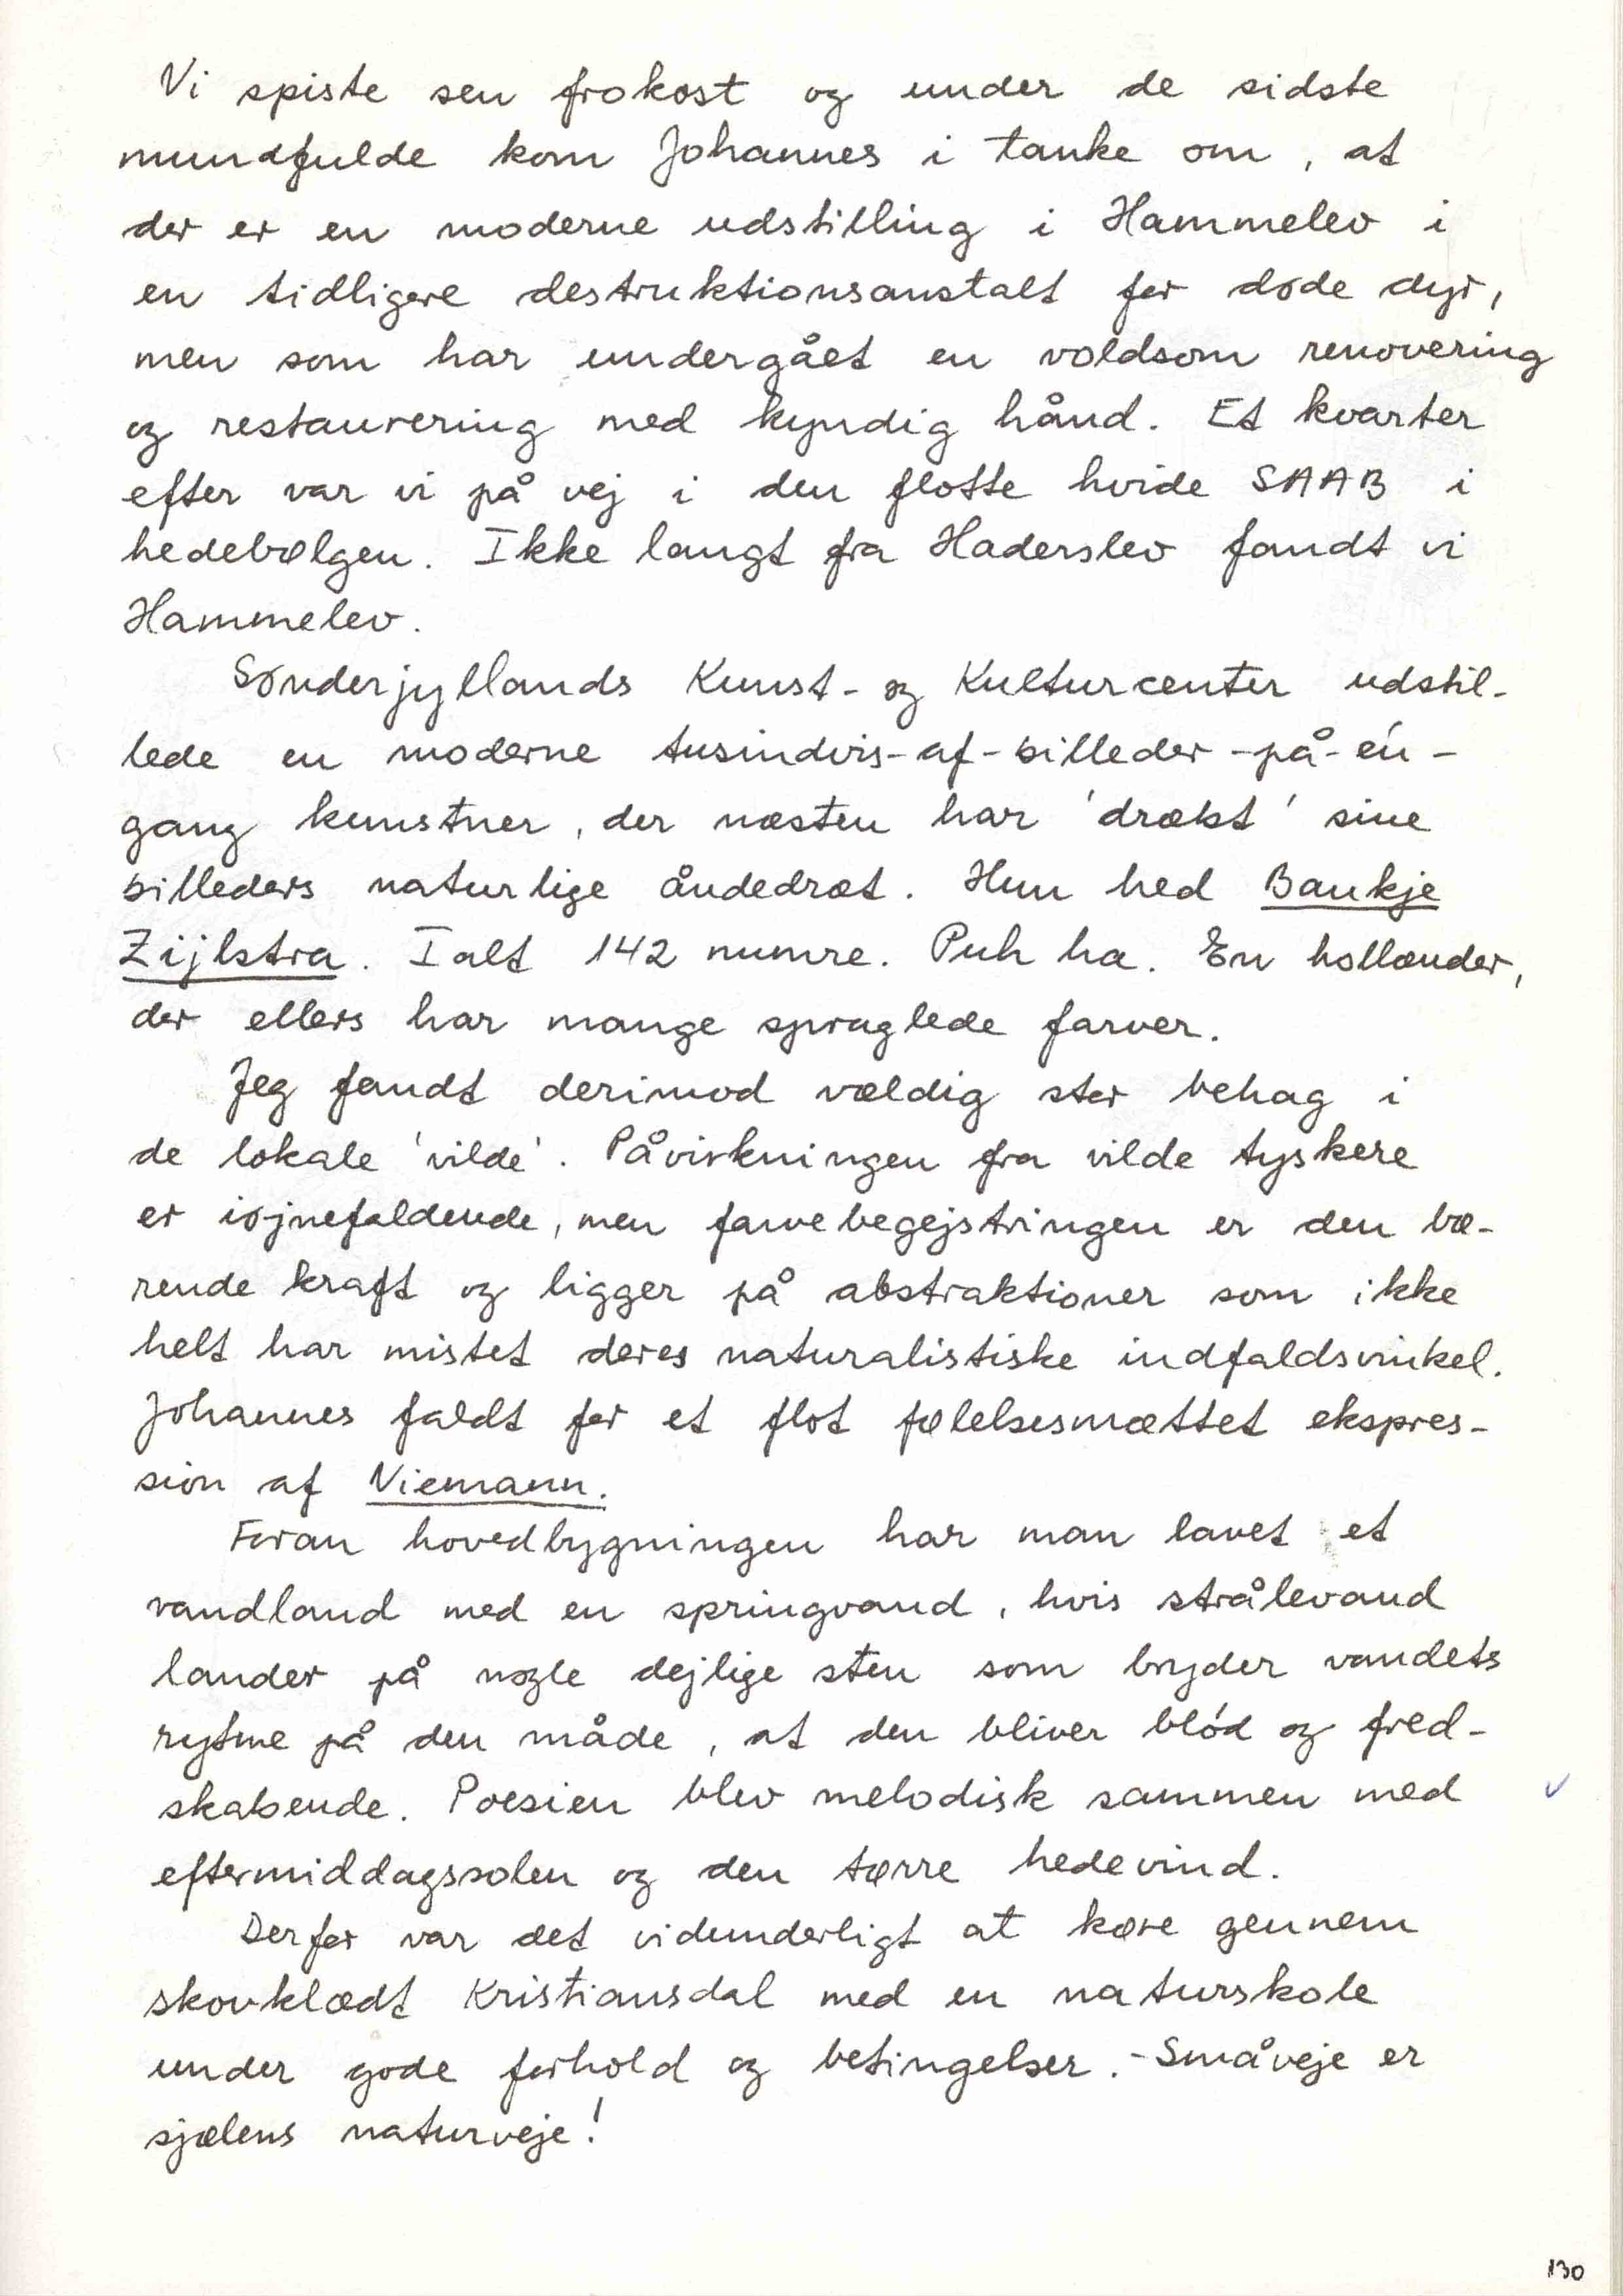 Vi spiste sen frokost og under de sidste
mundfulde kom Johannes i tanke om, at
der er en moderne udstilling i Hammelev i
en tidligere destruktionsanstalt for døde dyr,
men som har undergået en voldsom renovering
og restaurering med kyndig hånd. Et kvarter
efter var vi på vej i den flotte hvide SAAB i
hedebølgen. Ikke langt fra Haderslev fandt vi
Hammelev.
Sønderjyllands Kunst- og Kulturcenter udstil-
lede en moderne tusindvis-af-billeder-på-én-
gang kunstner, der næsten har 'dræbt' sine
billeders naturlige åndedræt. Hun hed Baukje
Zijlstra. Ialt 142 numre. Puh ha. En hollænder,
der ellers har mange spraglede farver.
Jeg fandt derimod vældig stor behag i
de lokale 'vilde'. Påvirkningen fra vilde tyskere
er iøjnefaldende, men farvebegejstringen er den bæ-
rende kraft og ligger på abstraktioner som ikke
helt har mistet deres naturalistiske indfaldsvinkel.
Johannes faldt for et flot følelsesmættet ekspres-
sion af Niemann.
Foran hovedbygningen har man lavet et
vandland med en springvand, hvis strålevand
lander på nogle dejlige sten som bryder vandets
rytme på den måde, at den bliver blød og fred-
skabende. Poesien blev melodisk sammen med
eftermiddagssolen og den tørre hedevind.
Derfor var det vidunderligt at køre gennem
skovklædt Kristiansdal med en naturskole
under gode forhold og betingelser. - Småveje er
sjælens naturveje!
130